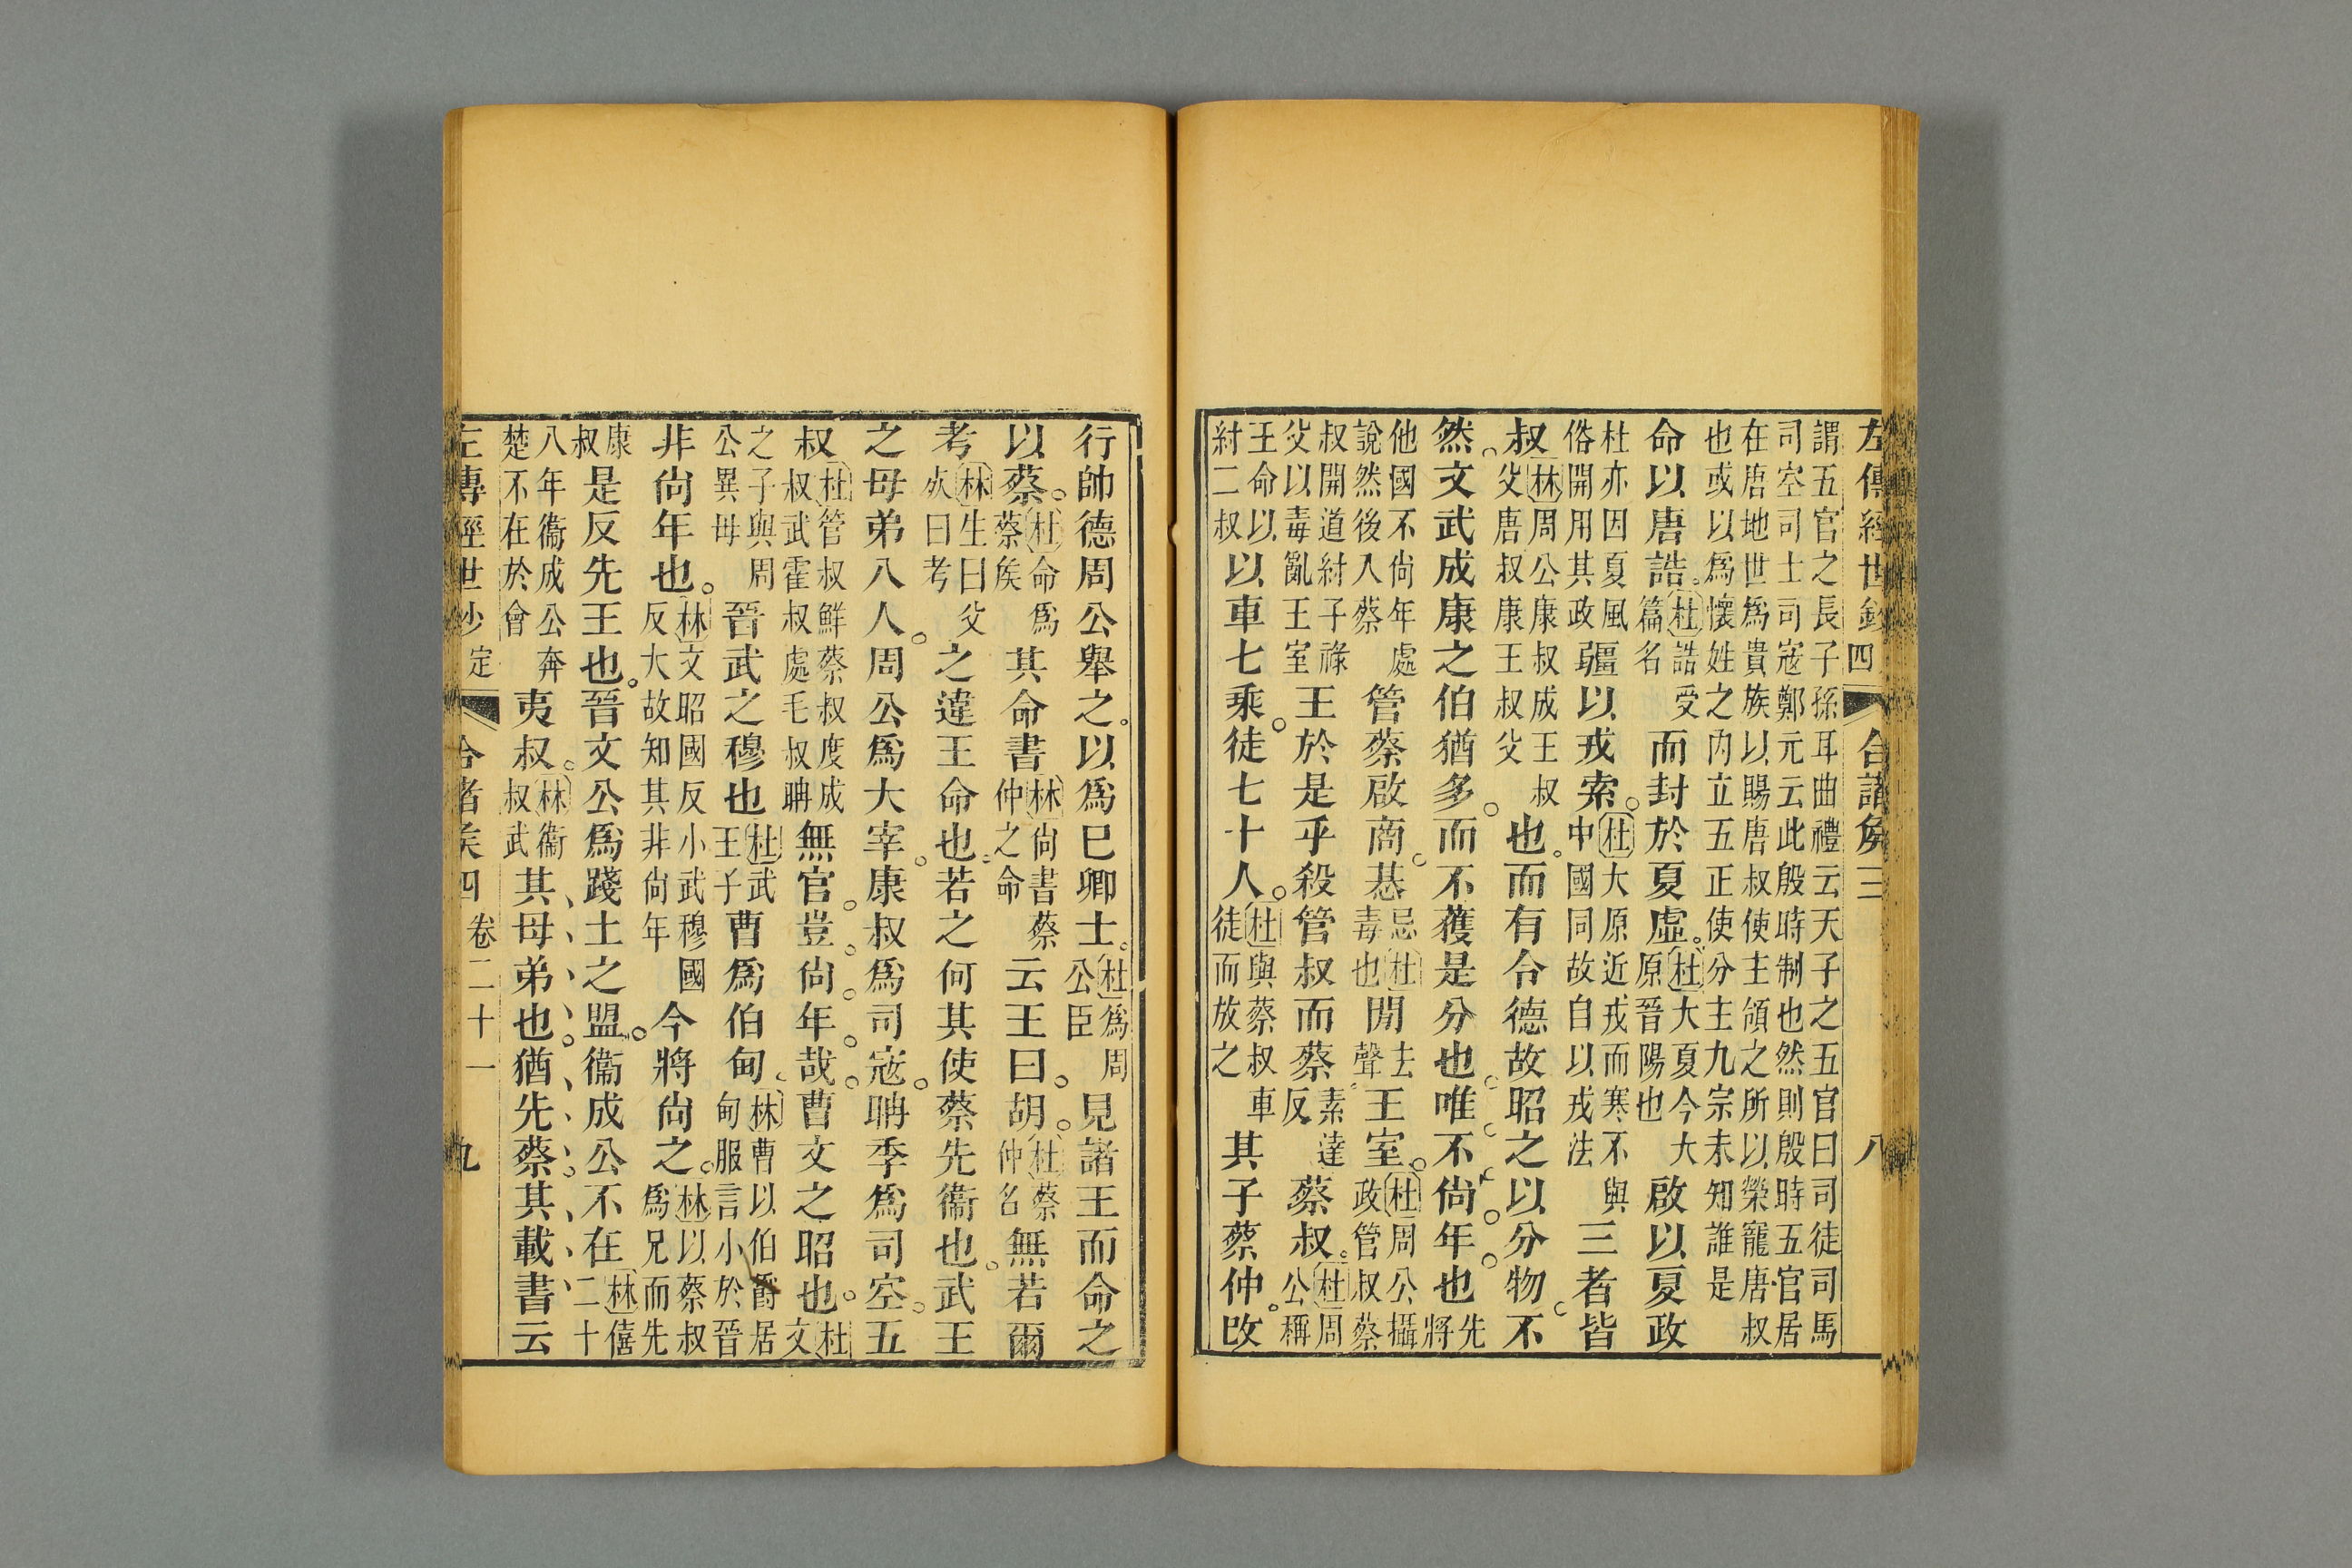 左傳經世鈔 四 合諸侯三 八
謂五官之長子孫耳曲禮云天子之五官曰司徒司馬
司空司士司寇鄭元云此殷時制也然則殷時五官居
在唐地世爲貴族以賜唐叔使主領之所以榮寵唐叔
也或以爲懷姓之內立五正使分主九宗未知誰是
命以唐誥。杜誥受篇名而封於夏虛。杜大夏今大原晉陽也啟以夏政
杜亦因夏風俗開用其政疆以戎索。杜大原近戎而寒不與中國同故自以戎法三者皆
叔林周公康叔成王叔父唐叔康王叔父也。而有令德故昭之以分物。不
然。文武成康之伯猶多。而不獲是分也。唯不尙年也先將
他國不尙年處說然後入蔡管蔡啟商。惎忌杜毒也閒去聲王室。杜周公攝政管叔蔡
叔開道紂子祿父以毒亂王室王於是乎殺管叔而蔡素達反蔡叔。杜周公稱
王命以紂二叔以車七乘。徒七十人。杜與蔡叔車徒而放之其子蔡仲。改
行帥德周公舉之。以爲巳卿士。杜爲周公臣見諸王而命之
以蔡。杜命爲蔡侯其命書林尙書蔡仲之命云王曰。胡。杜蔡仲名無若爾
考林生曰父殀曰考之違王命也。若之何其使蔡先衞也。武王
之母弟八人。周公爲大宰。康叔爲司寇。聃季爲司空。五
叔杜管叔鮮蔡叔度成叔武霍叔處毛叔聃無官。豈尙年哉。曹文之昭也。杜文
之子與周公異母晉武之穆也杜武王子曹爲伯甸。林曹以伯爵居甸服言小於晉
非尙年也。林文昭國反小武穆國反大故知其非尙年今將尙之。林以蔡叔爲兄而先
康叔是反先王也。晉文公爲踐土之盟。衞成公不在林僖二十
八年衞成公奔楚不在於會夷叔。林衞叔武其母弟也。猶先蔡。其載書云
左傳經世鈔 定 合諸侯四 卷二十一 九